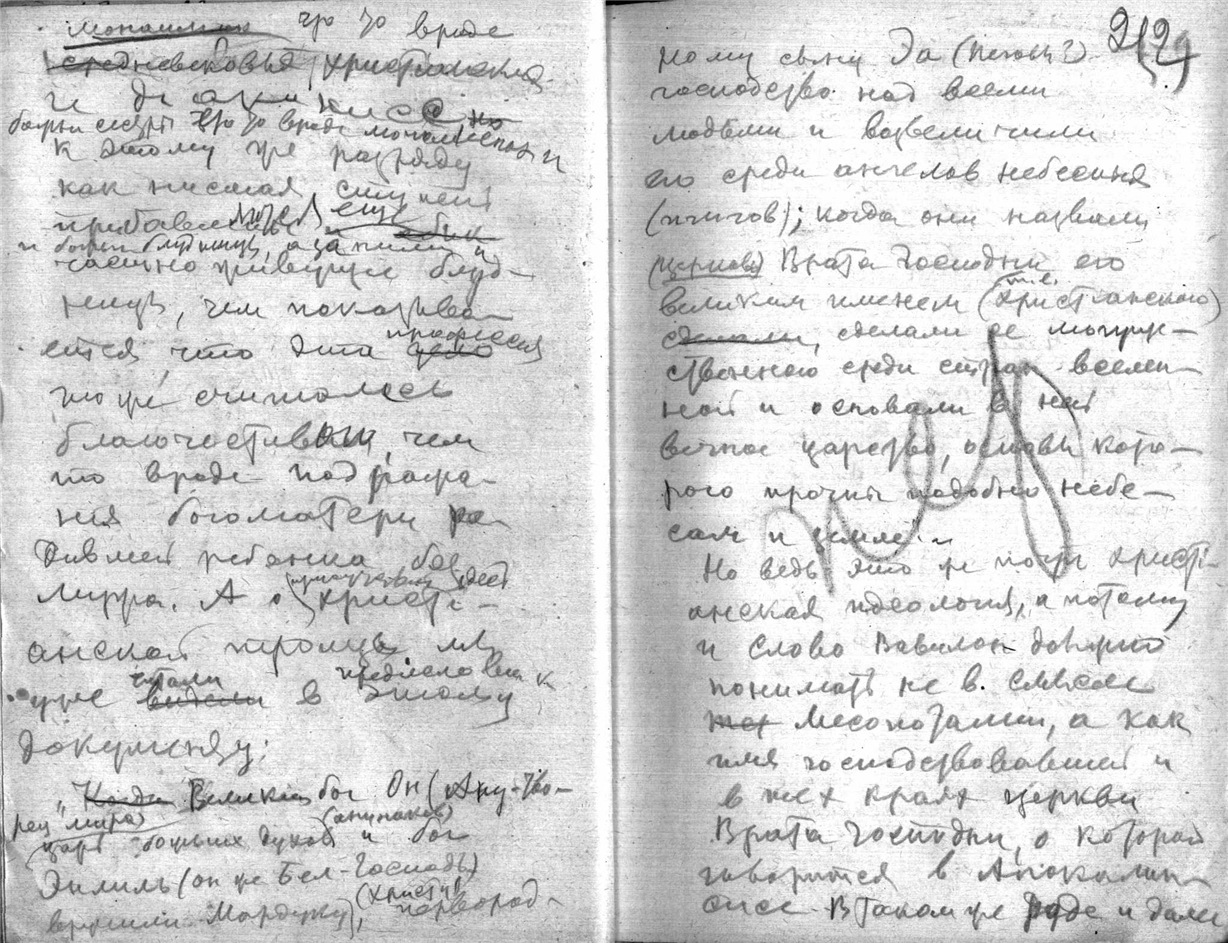 монашинки что то вроде
средневековья христианския
и диакинисс но
божьи сестры что то вроде монашенок и
к этому же разряду
как низшая, ступень
прибавлены еще
и божьи блудницы, а за ними и
частно живущие блуд-
ницы, чем показыва-
ется, что эта дело профессия
тоже считалась
благочестивой, чем
то вроде подража-
ния богоматери ро-
дившей ребенка без
мирра. А о христи-
анской троице мы
уже видели читали в предисловии к этому
документу:
„Когда Великий бог Он (Ану-Тво-
рец мира)
царь божьих духов (анунаков) и бог
Энлиль (он же Бел-Господь)
вручили Мардуку (Христу), первород-
212
ному сыну Эа (Иеговы?)
господство над всеми
людьми и возвеличили
его среди ангелов небесных
(игигов); когда они назвали
(церковь) Врата Господни его
великим именем (т.е. христианского)
сделали, сделали ее могуще-
ственною среди стран вселен-
ной и основали в ней
вечное царство, основы кото-
рого прочны подобно небе-
сам и земле"
Но ведь это же почти христи-
анская идеология, а потому
и слово Вавилон должно
понимать не в смысле
Месопотамии, а как
имя господствовавшей и
в тех краях церкви
Врата Господни, о которой
говорится в Апокалип-
сисе. В таком же роде и далее